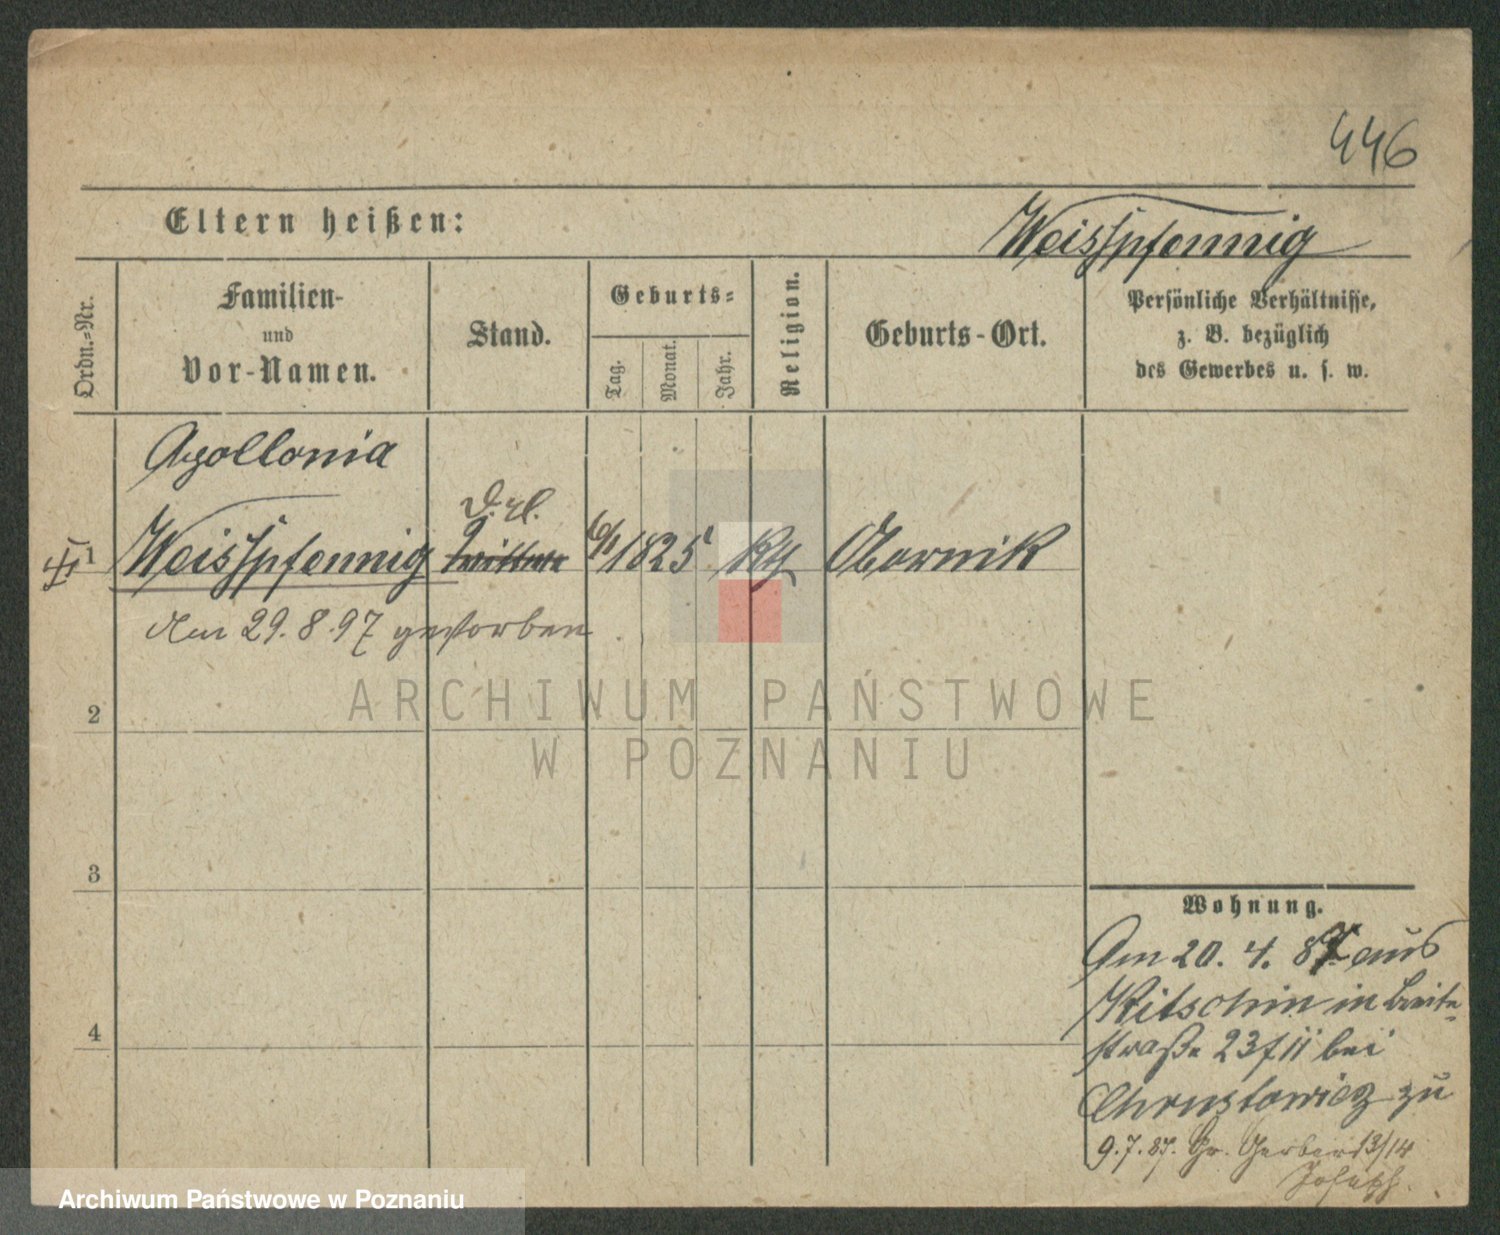 446
Eltern heißen:
Weisspfennig
Ordn.-Nr.
Familien-
und
Vor-Namen.
Stand.
Geburts-
Tag.
Monat.
Jahr.
Religion.
Geburts-Ort.
Persönliche Verhältnisse,
z. B. bezüglich
des Gewerbes u. s. w.
Apollonia
1 Weisspfennig Wittwe 1825 Kth Obornik
Am 29.8.97 gestorben
2
3
4
Wohnung.
Am 20. 4. 87 aus
Kitschin in Breite-
straße 23 f II bei
Chrustowicz zu
9.7.87. Gr. Gerber 13/14
Joseph.
ARCHIWUM PAŃSTWOWE
W POZNANIU
Archiwum Państwowe w Poznaniu